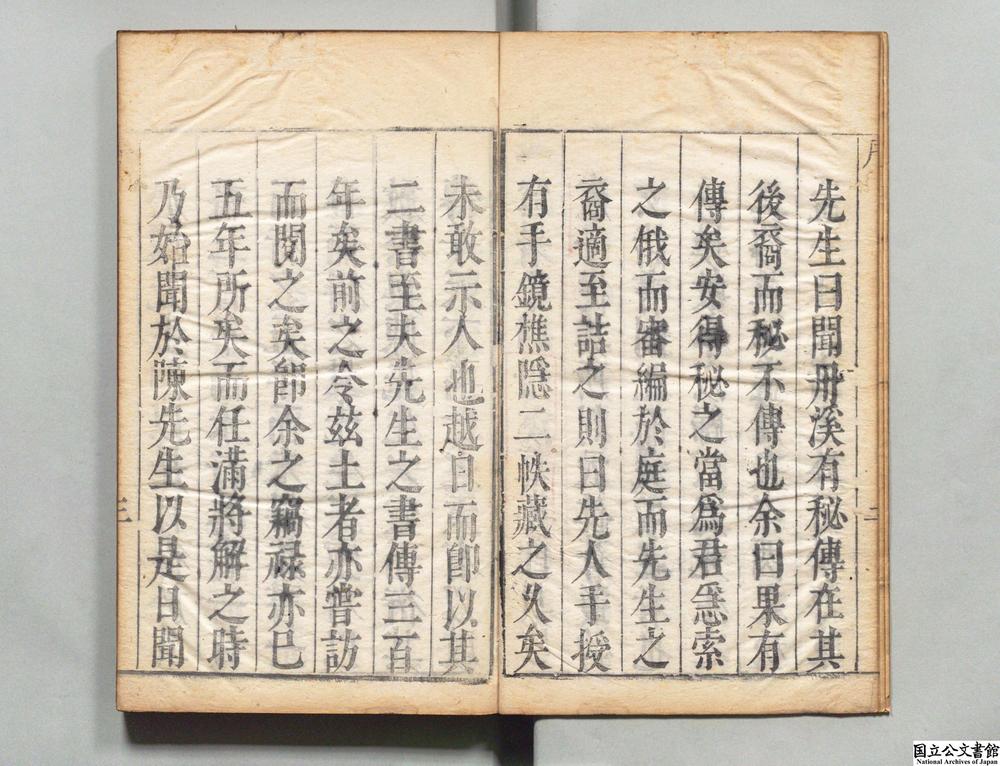 先生曰聞丹溪有秘傳在其
後裔而秘不傳也余曰果有
傳矣安得秘之當爲君亟索
之俄而審編於庭而先生之
裔適至詰之則曰先人手授
有手鏡樵隠二帙藏之久矣
未敢示人也越日而即以其
二書至夫先生之書傳三百
年矣前之令茲土者亦嘗訪
而閱之矣即余之竊祿亦已
五年所矣而任滿將解之時
乃始聞於陳先生以是日聞
二
三
国立公文書館
National Archives of Japan